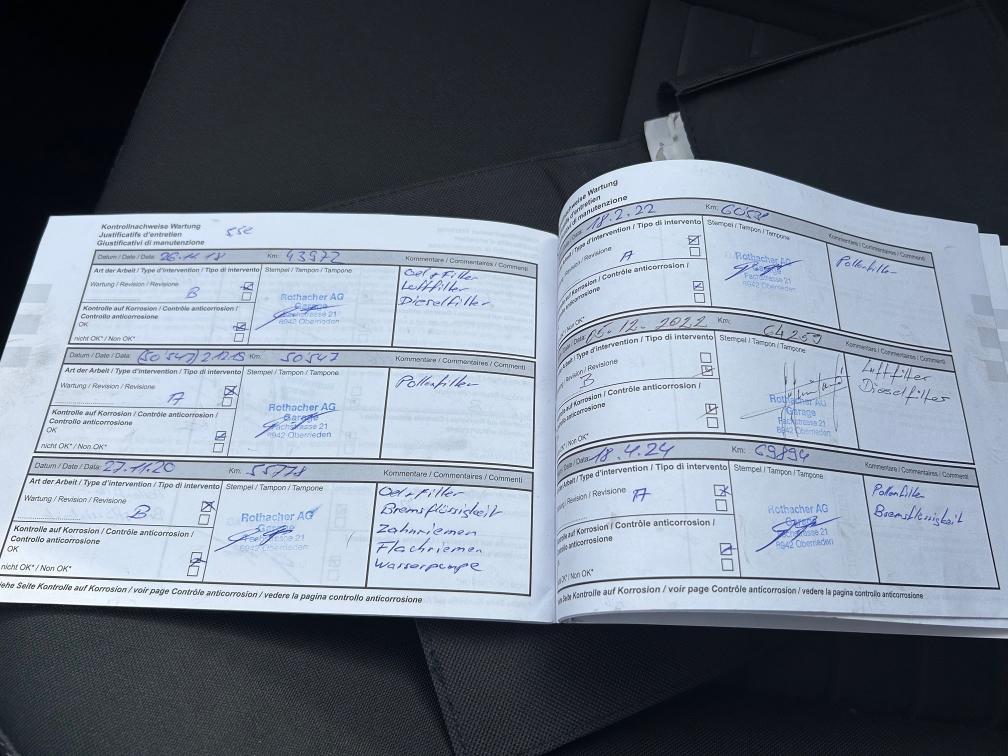 Kontrollnachweise Wartung
Justificatifs d'entretien
Giustificativi di manutenzione
Datum / Date / Data: 26.11.18 Km: 43972
Kommentare / Commentaires / Commenti
Art der Arbeit / Type d'intervention / Tipo di intervento
Stempel / Tampon / Tampone
Oel + Filter
Luftfilter
Dieselfilter
Wartung / Revision / Revisione
B
Rothacher AG
Garage
Fachstrasse 21
8942 Oberrieden
Kontrolle auf Korrosion / Contrôle anticorrosion /
Controllo anticorrosione
OK
nicht OK* / Non OK*
Datum / Date / Data: (50547) 2.12.19 Km: 50547
Kommentare / Commentaires / Commenti
Art der Arbeit / Type d'intervention / Tipo di intervento
Stempel / Tampon / Tampone
Pollenfilter
Wartung / Revision / Revisione
A
Rothacher AG
Garage
Fachstrasse 21
8942 Oberrieden
Kontrolle auf Korrosion / Contrôle anticorrosion /
Controllo anticorrosione
OK
nicht OK* / Non OK*
Datum / Date / Data: 27.11.20 Km: 55778
Kommentare / Commentaires / Commenti
Art der Arbeit / Type d'intervention / Tipo di intervento
Stempel / Tampon / Tampone
Oel + Filter
Bremsflüssigkeit
Zahnriemen
Flachriemen
Wasserpumpe
Wartung / Revision / Revisione
B
Rothacher AG
Garage
Fachstrasse 21
8942 Oberrieden
Kontrolle auf Korrosion / Contrôle anticorrosion /
Controllo anticorrosione
OK
nicht OK* / Non OK*
iehe Seite Kontrolle auf Korrosion / voir page Contrôle anticorrosion / vedere la pagina controllo anticorrosione
chweise Wartung
d'entretien
di manutenzione
Data: 18.2.22 Km:
Kommentare / Commentaires / Commenti
Arbeit / Type d'intervention / Tipo di intervento
Stempel / Tampon / Tampone
Pollenfilter
Revision / Revisione
A
Rothacher AG
Garage
Fachstrasse 21
8942 Oberrieden
auf Korrosion / Contrôle anticorrosion /
anticorrosione
OK* / Non OK*
Data: 05.12.2022 Km: 64259
Kommentare / Commentaires / Commenti
Arbeit / Type d'intervention / Tipo di intervento
Stempel / Tampon / Tampone
Luftfilter
Dieselfilter
Revision / Revisione
B
Rothacher AG
Garage
Fachstrasse 21
8942 Oberrieden
auf Korrosion / Contrôle anticorrosion /
anticorrosione
OK* / Non OK*
Date / Data: 18.4.24 Km: 69894
Kommentare / Commentaires / Commenti
Arbeit / Type d'intervention / Tipo di intervento
Stempel / Tampon / Tampone
Pollenfilter
Bremsflüssigkeit
Revision / Revisione
A
Rothacher AG
Garage
Fachstrasse 21
8942 Oberrieden
auf Korrosion / Contrôle anticorrosion /
anticorrosione
OK* / Non OK*
Seite Kontrolle auf Korrosion / voir page Contrôle anticorrosion / vedere la pagina controllo anticorrosione